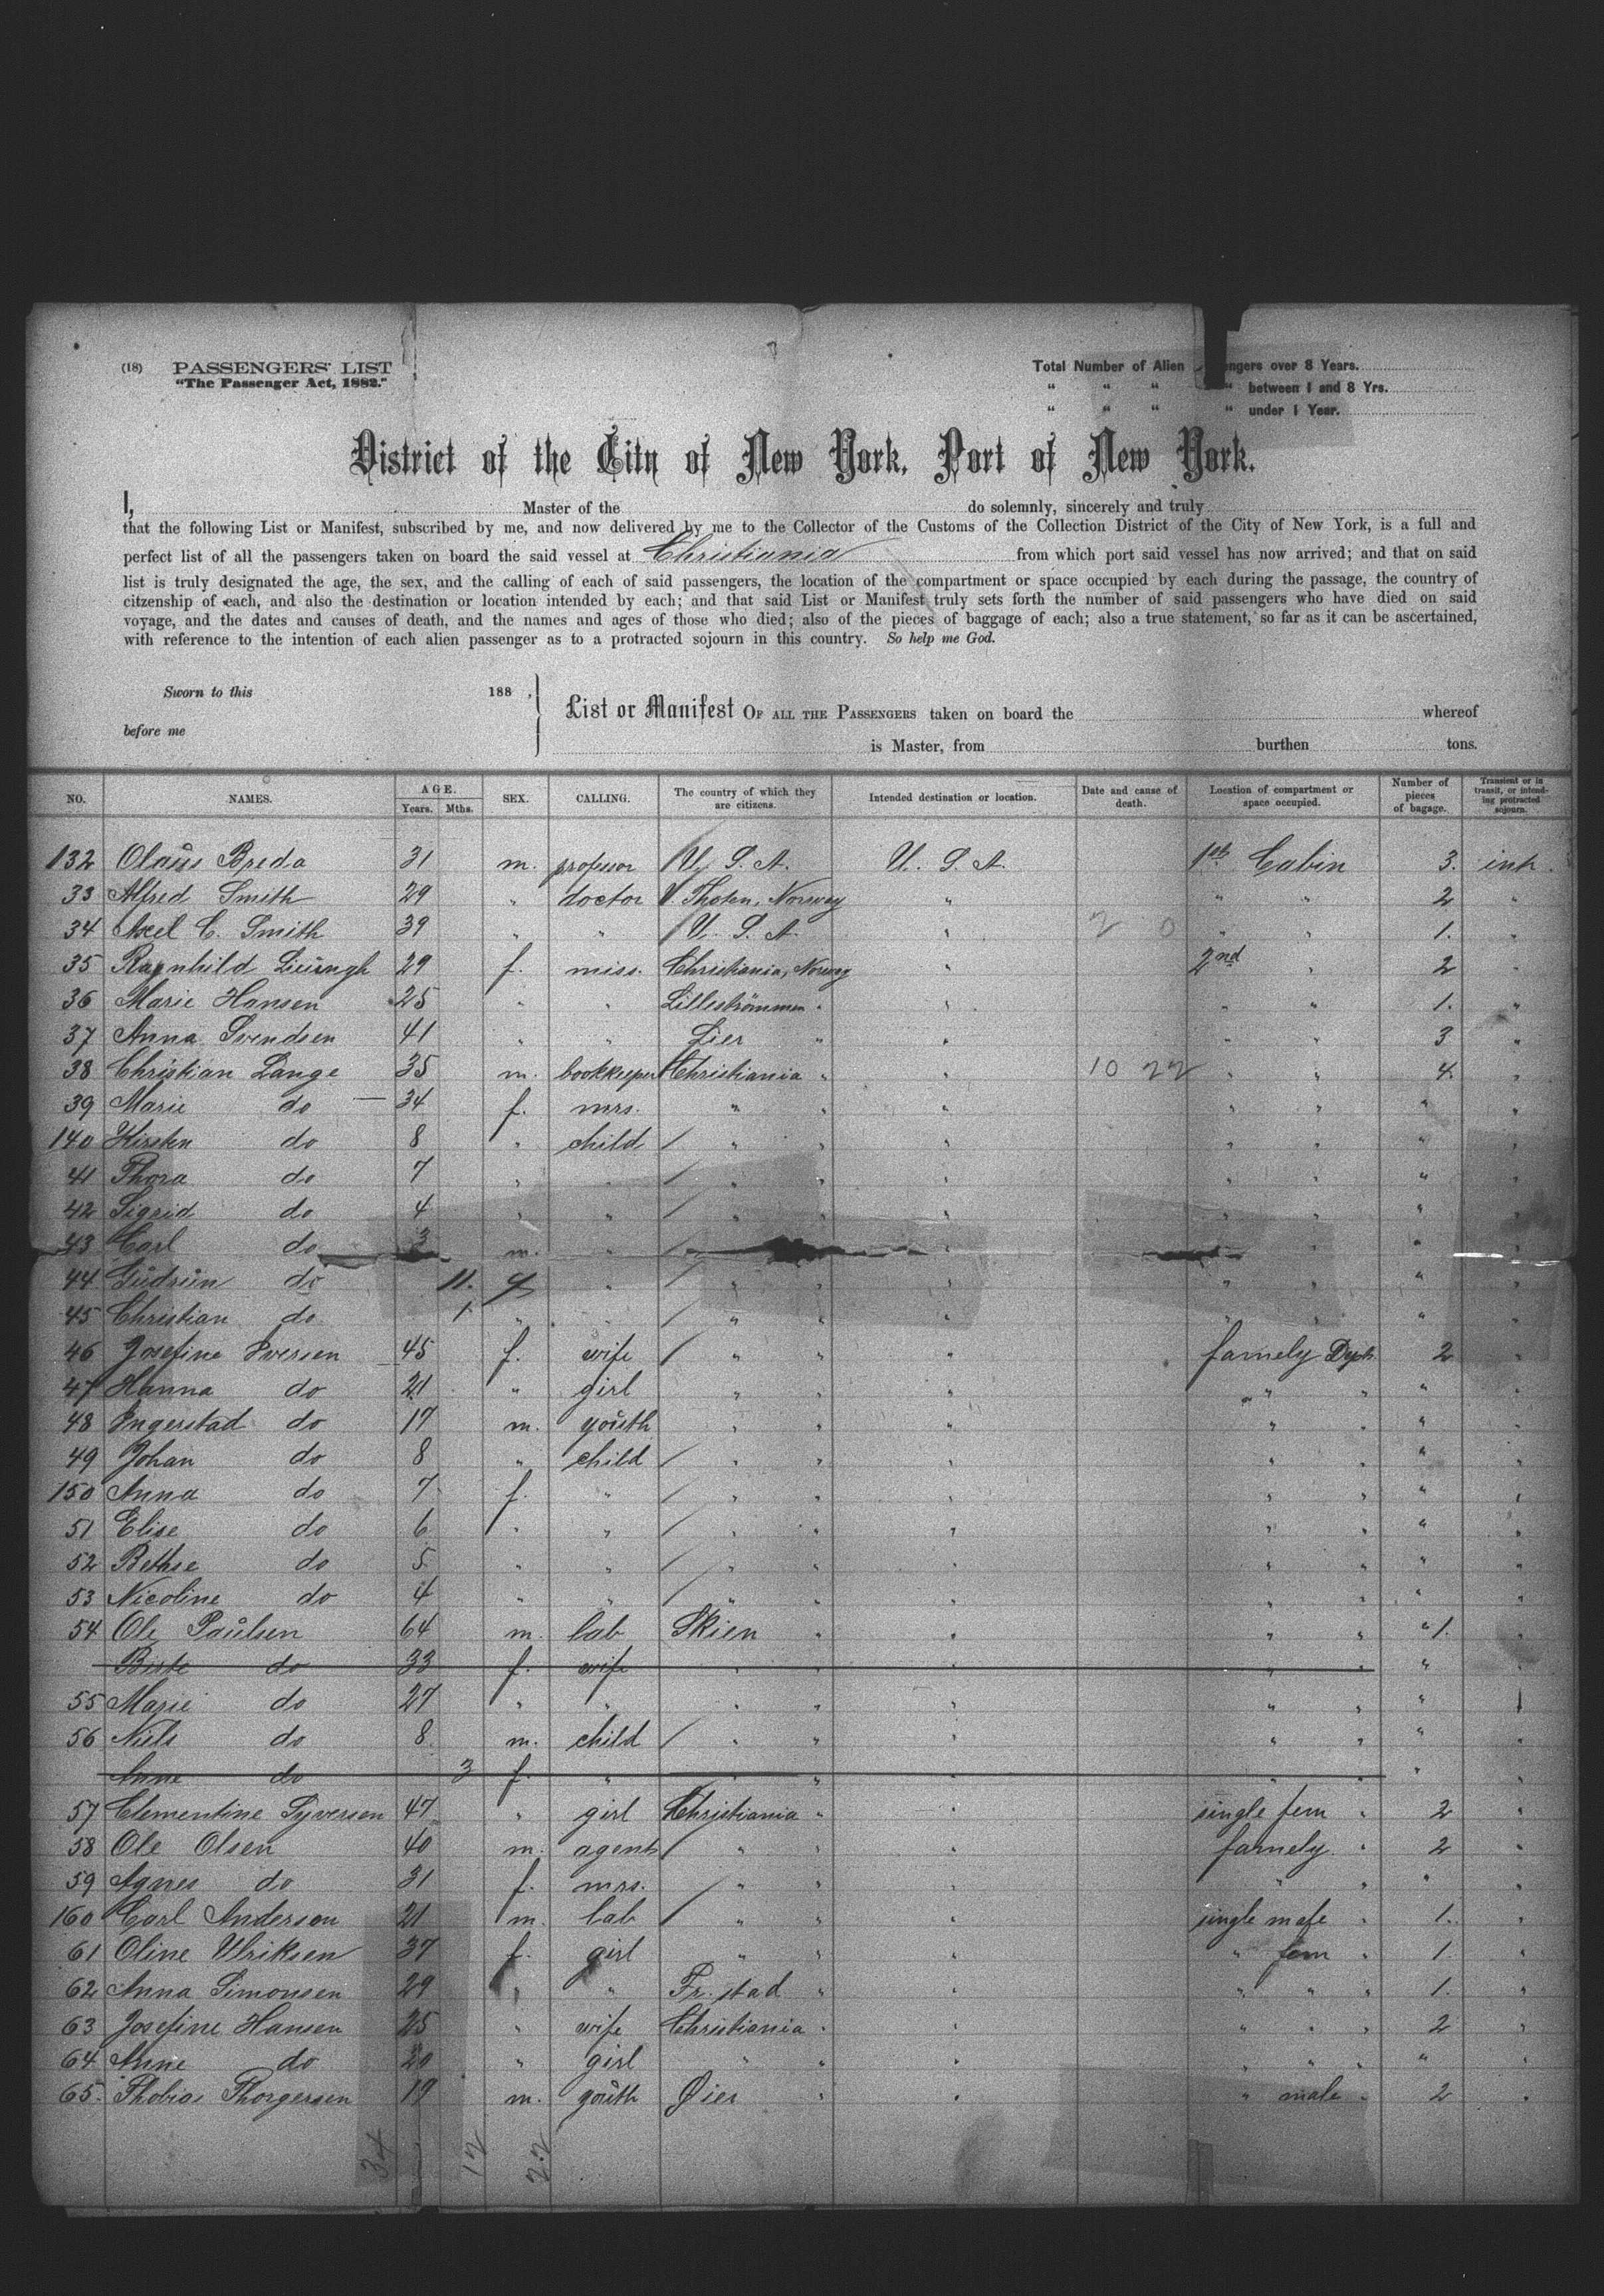 (18) PASSENGERS' LIST
"The Passenger Act, 1882."
Total Number of Alien engers over 8 Years.
" " " " between 1 and 8 Yrs.
" " " " under 1 Year.
District of the City of New York, Port of New York.
I, Master of the do solemnly, sincerely and truly
that the following List or Manifest, subscribed by me, and now delivered by me to the Collector of the Customs of the Collection District of the City of New York, is a full and
perfect list of all the passengers taken on board the said vessel at Christiania from which port said vessel has now arrived; and that on said
list is truly designated the age, the sex, and the calling of each of said passengers, the location of the compartment or space occupied by each during the passage, the country of
citzenship of each, and also the destination or location intended by each; and that said List or Manifest truly sets forth the number of said passengers who have died on said
voyage, and the dates and causes of death, and the names and ages of those who died; also of the pieces of baggage of each; also a true statement, so far as it can be ascertained,
with reference to the intention of each alien passenger as to a protracted sojourn in this country. So help me God.
Sworn to this 188 ,
before me
List or Manifest OF ALL THE PASSENGERS taken on board the whereof
is Master, from burthen tons.
NO. NAMES. AGE. Years. Mths. SEX. CALLING. The country of which they are citizens. Intended destination or location. Date and cause of death. Location of compartment or space occupied. Number of pieces of bagage. Transient or in transit, or intending protracted sojourn.
132 Olaus Breda 31 m. professor U. S. A. U. S. A. 1st Cabin 3. intr.
33 Alfred Smith 29 " doctor V. Thoten, Norway " " " 2 "
34 Axel C. Smith 39 " " U. S. A. " 2 0 " " 1. "
35 Ragnhild 29 f. miss. Christiania, Norway " 2nd " 2 "
36 Marie Hansen 25 " " Lilleströmmen " " " " 1. "
37 Anna Svendsen 41 " " Lier " " " " 3 "
38 Christian Lange 35 m. bookkeeper Christiania " " 10 22 " " 4. "
39 Marie do 34 f. mrs. " " " " " " "
140 Kirsten do 8 " child " " " " " " "
41 Thora do 7 " " " " " " " " "
42 Sigrid do 4 " " " " " " " " "
43 Carl do 3 m. " " " " " " "
44 Gudrun do 11. f " " " " " " " "
45 Christian do 1 " " " " " " " " "
46 Josefine Iversen 45 f. wife " " " famely Dept. 2 "
47 Hanna do 21 " girl " " " " " " "
48 Ingerstad do 17 m. youth " " " " " " "
49 Johan do 8 " child " " " " " " "
150 Anna do 7 f. " " " " " " " "
51 Elise do 6 " " " " " " " " "
52 Bethse do 5 " " " " " " " " "
53 Nicoline do 4 " " " " " " " " "
54 Ole Paulsen 64 m. lab Skien " " " " " 1. "
do 33 f. wife " " " " " " "
55 Marie do 27 " " " " " " " "
56 Niels do 8 m. child " " " " " " "
Anne do 3 f. " " " " " " " "
57 Clementine Syversen 47 " girl Christiania " " single fem " 2 "
58 Ole Olsen 40 m. agent " " " famely " 2 "
59 Agnes do 31 f. mrs. " " " " " " "
160 Carl Andersen 21 m. lab " " " single male " 1. "
61 Oline Ulriksen 37 f. girl " " " " fem " 1 "
62 Anna Simonsen 29 " " Fr. stad " " " " " 1. "
63 Josefine Hansen 25 " wife Christiania " " " " " 2 "
64 Anne do 20 " girl " " " " " " " "
65 Thobias Thorgersen 19 m. youth Øier " " " male " 2 "
34 12 22